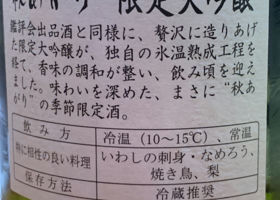 秋あがり 限定大吟醸
鑑評会出品酒と同様に、贅沢に造りあげ
た限定大吟醸が、独自の氷温熟成工程を
経て、香味の調和が整い、飲み頃を迎え
ました。味わいを深めた、まさに“秋あ
がり”の季節限定酒。
飲み方 冷温(10〜15℃)、常温
特に相性の良い料理 いわしの刺身・なめろう、
焼き鳥、梨
保存方法 冷蔵推奨